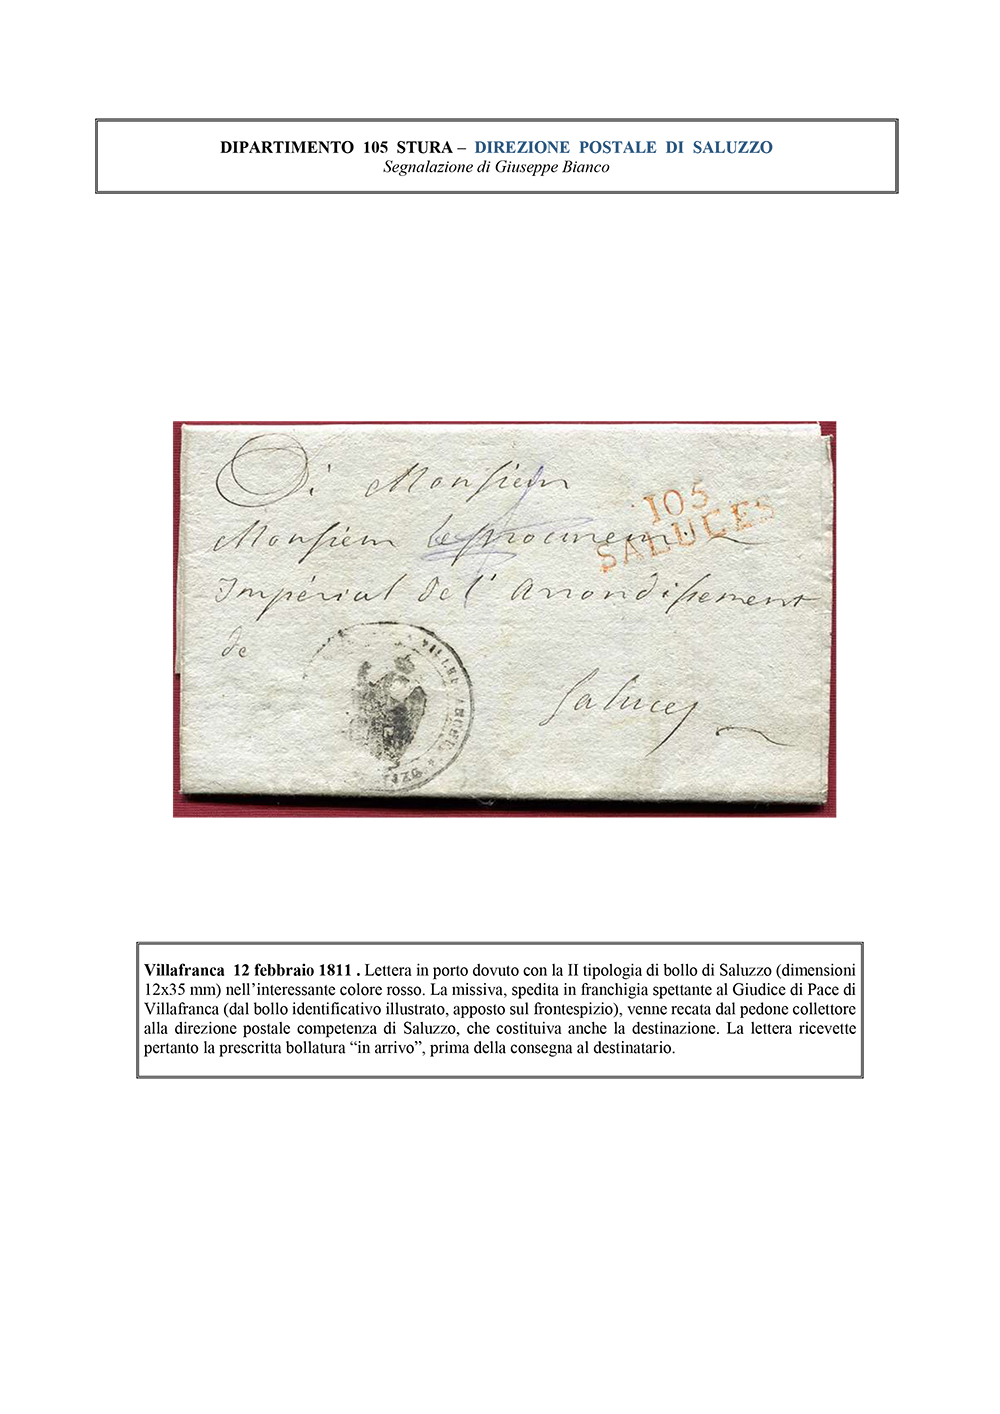 DIPARTIMENTO 105 STURA – DIREZIONE POSTALE DI SALUZZO
Segnalazione di Giuseppe Bianco
Di Monsieur
105
SALUCES
Monsieur le procureur
Impérial de l'Arrondissement
de
Saluces
Villafranca 12 febbraio 1811 . Lettera in porto dovuto con la II tipologia di bollo di Saluzzo (dimensioni
12x35 mm) nell’interessante colore rosso. La missiva, spedita in franchigia spettante al Giudice di Pace di
Villafranca (dal bollo identificativo illustrato, apposto sul frontespizio), venne recata dal pedone collettore
alla direzione postale competenza di Saluzzo, che costituiva anche la destinazione. La lettera ricevette
pertanto la prescritta bollatura “in arrivo”, prima della consegna al destinatario.